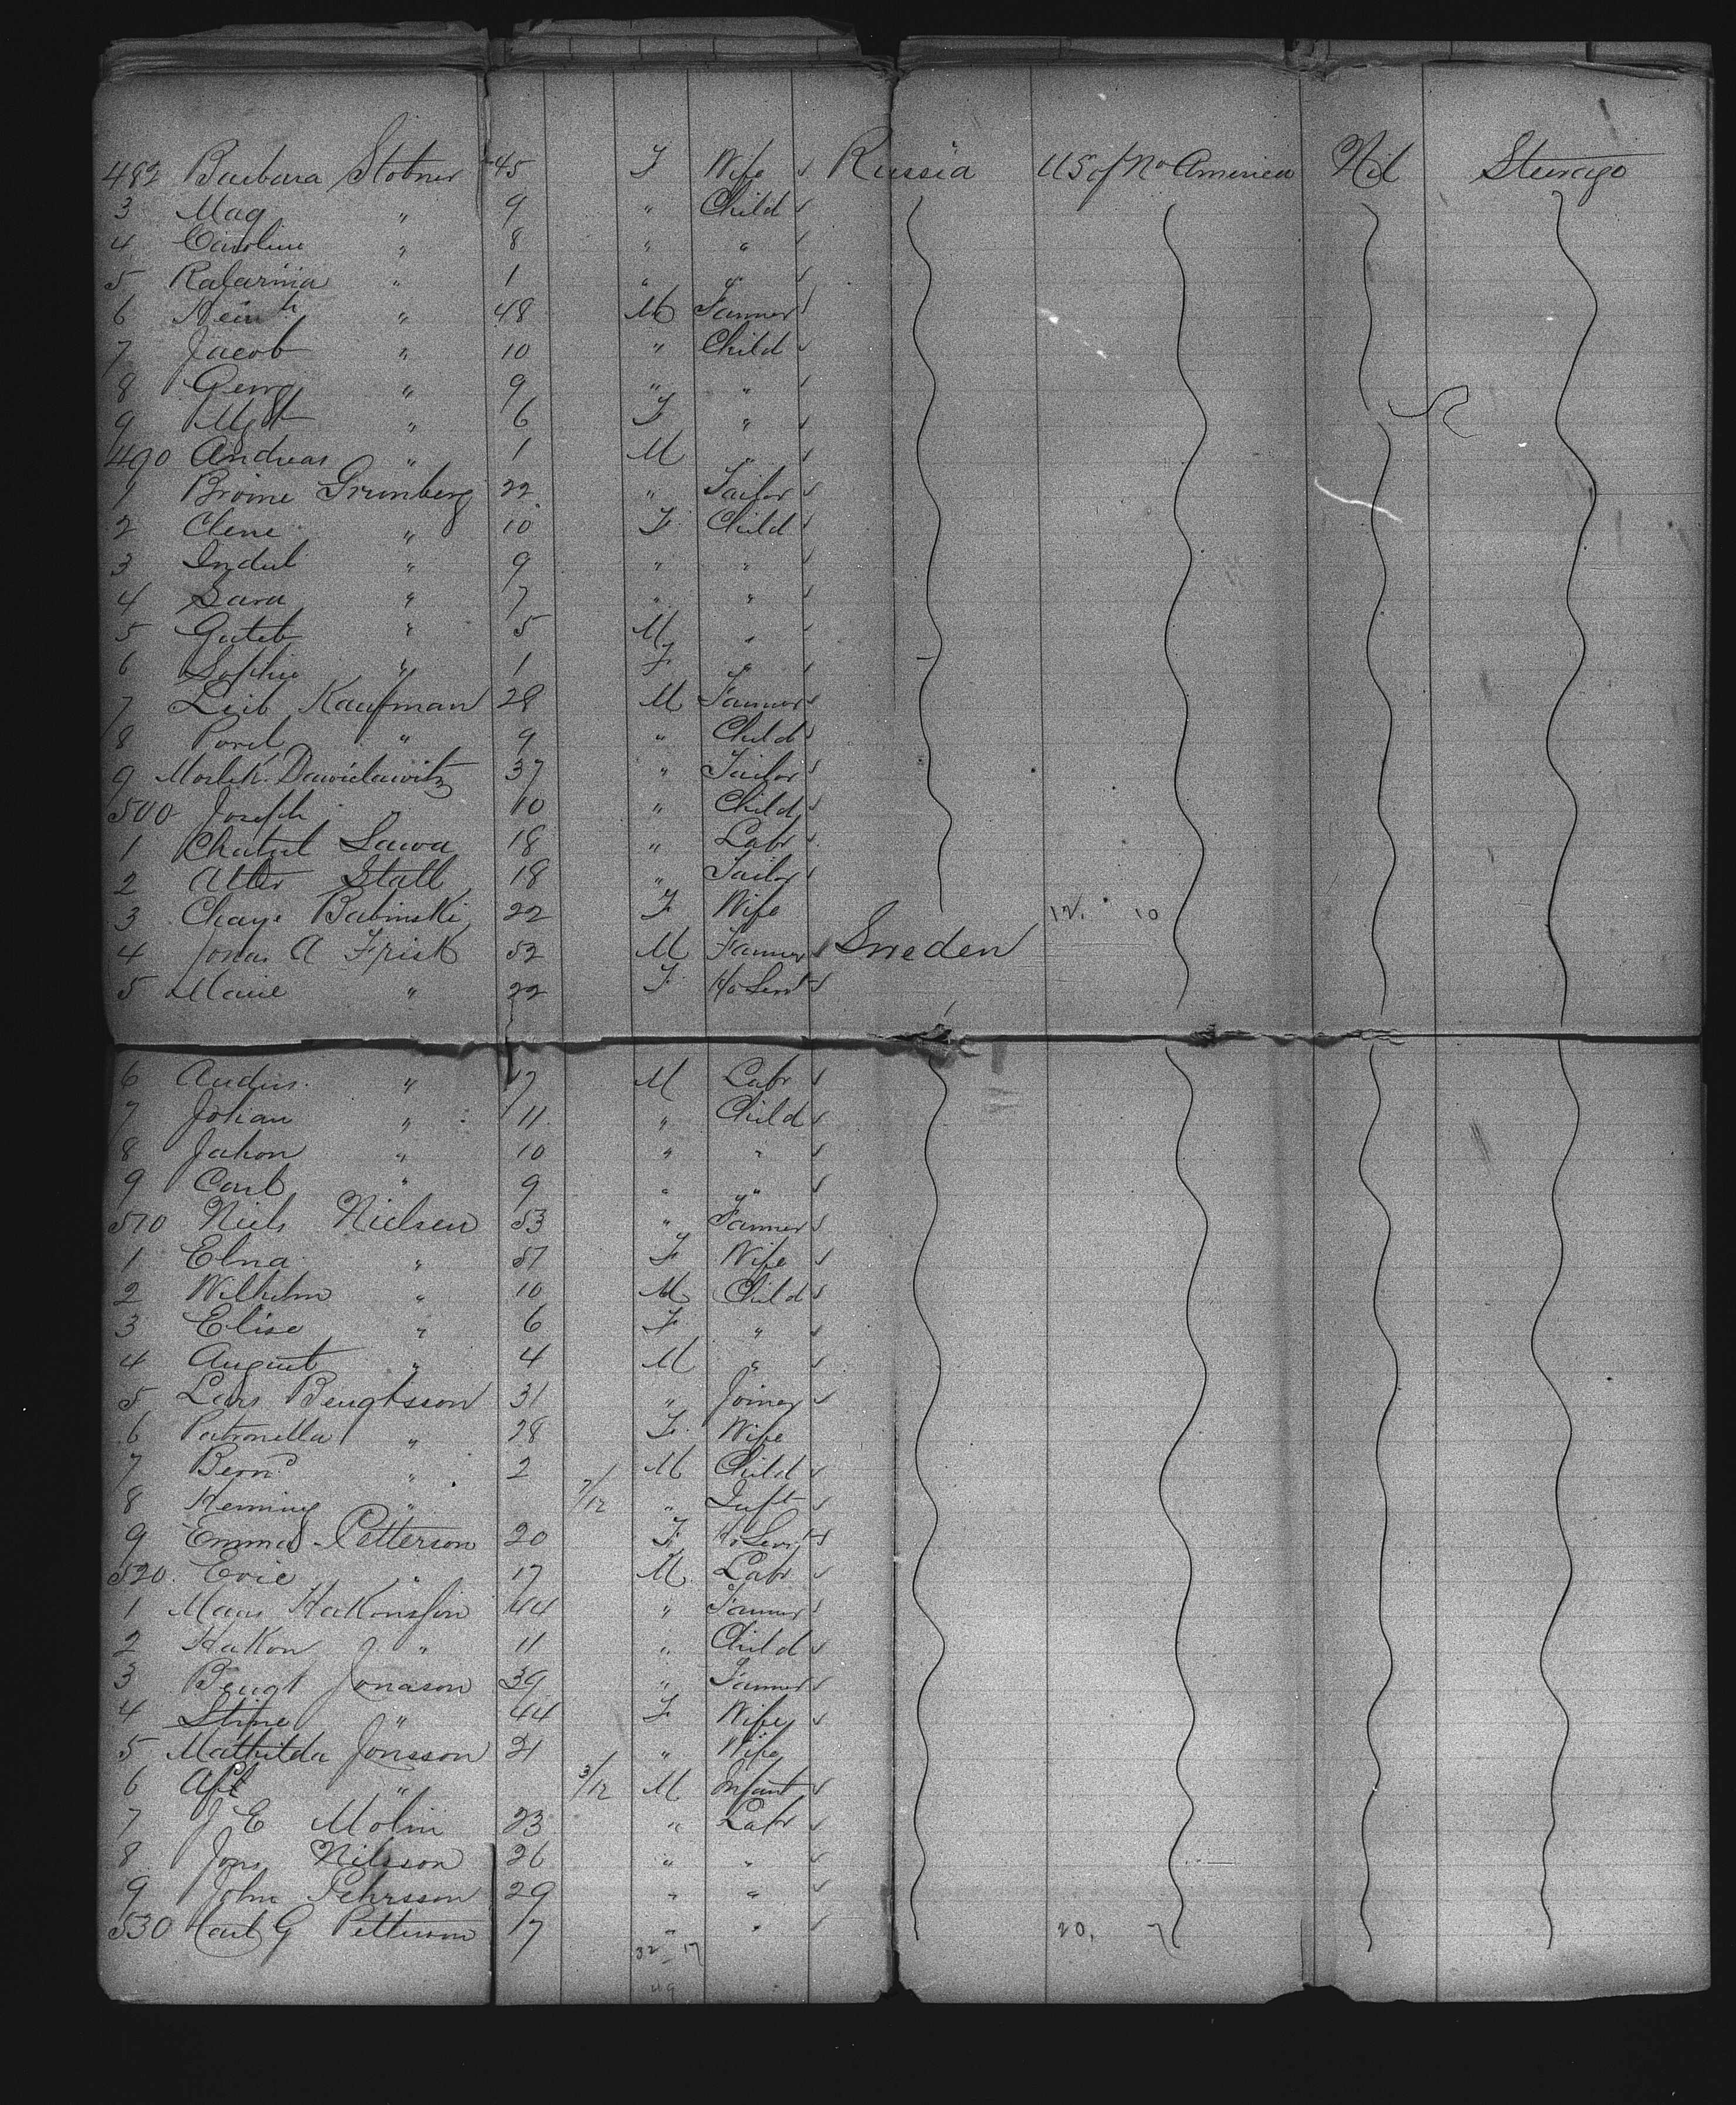 482 Barbara Stobner 45 F Wife ✓ Russia US of No America Nil Steerage
3 Mag " 9 " Child ✓
4 Caroline " 8 " " ✓
5 " 1 " " ✓
6 Heinh " 48 M Farmer ✓
7 Jacob " 10 " Child ✓
8 Georg " 9 " " ✓
9 " 6 F " ✓
490 Andreas " 1 M " ✓
1 Broine Grunberg 22 " Tailor ✓
2 Chene " 10 F Child ✓
3 " 9 " " ✓
4 Sara " 7 " " ✓
5 " 5 M " ✓
6 Sophie " 1 F " ✓
7 Leib Kaufman 28 M Farmer ✓
8 " 9 " Child ✓
9 37 " Tailor ✓
500 Joseph " 10 " Child ✓
1 18 " Labr ✓
2 Alter Stall 18 " Tailor ✓
3 Chaye Babinski 22 F Wife 12. 10
4 Jonas A Frisk 52 M Farmer ✓ Sweden
5 Marie " 22 F Ho Servt ✓
6 Anders " 17 M Labr ✓
7 Johan " 11 " Child ✓
8 " 10 " " ✓
9 Carl " 9 " " ✓
510 Niels Nielsen 53 " Farmer ✓
1 Elna " 51 F Wife ✓
2 Wilhelm " 10 M Child ✓
3 Elise " 6 F " ✓
4 August " 4 M " ✓
5 Lars Bengtsson 31 " Joiner ✓
6 Petronella " 28 F Wife
7 Bernd " 2 M Child ✓
8 Heming " 7/12 " Inft ✓
9 Emma S Petterson 20 F Ho Servt ✓
520 Eric " 17 M Labr ✓
1 Mans Hakonsson 44 " Farmer ✓
2 Hakon J " 11 " Child ✓
3 Bengt Jonason 39 " Farmer ✓
4 Stine " 44 F Wife ✓
5 Mathilda Jonsson 21 " Wife
6 " 3/12 M Infant ✓
7 J E Molin 23 " Labr ✓
8 Jons Nilsson 26 " " ✓
9 John Pehrsson 29 " " ✓
530 Carl G Petterson 17 " " ✓ 20. 7
32 17
49